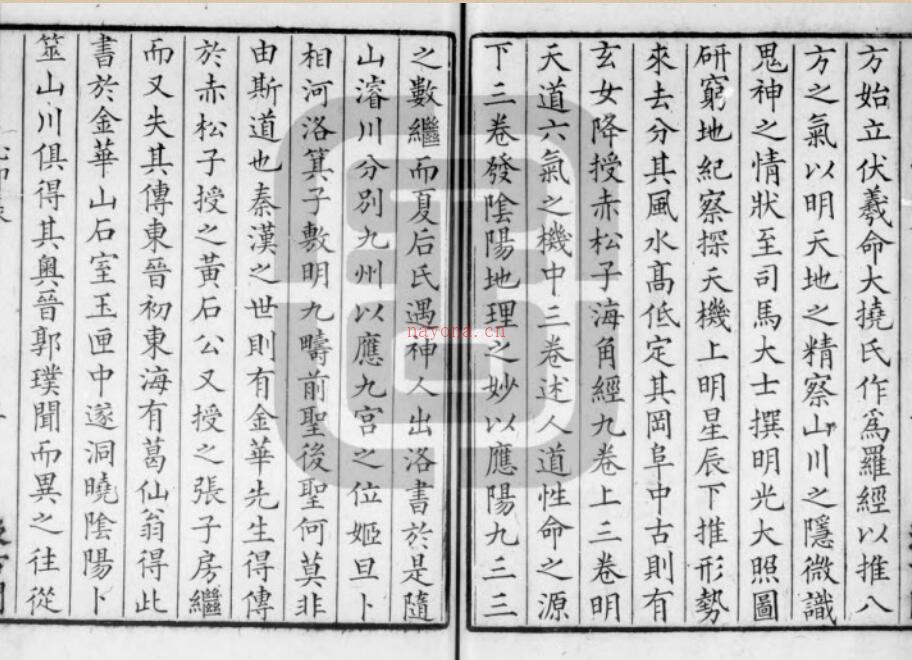 方始立伏羲命大撓氏作爲羅經以推八
方之氣以明天地之精察山川之隱微識
鬼神之情狀至司馬大士撰明光大照圖
研窮地紀察探天機上明星辰下推形勢
來去分其風水高低定其岡阜中古則有
玄女降授赤松子海角經九卷上三卷明
天道六氣之機中三卷述人道性命之源
下三卷發隂陽地理之妙以應陽九三三
之數繼而夏后氏遇神人出洛書於是隨
山濬川分別九州以應九宮之位姬旦卜
相河洛箕子敷明九疇前聖後聖何莫非
由斯道也秦漢之世則有金華先生得傳
於赤松子授之黃石公又授之張子房繼
而又失其傳東晉初東海有葛仙翁得此
書於金華山石室玉匣中遂洞曉隂陽卜
筮山川俱得其奧晉郭璞聞而異之往從
nayona.cn